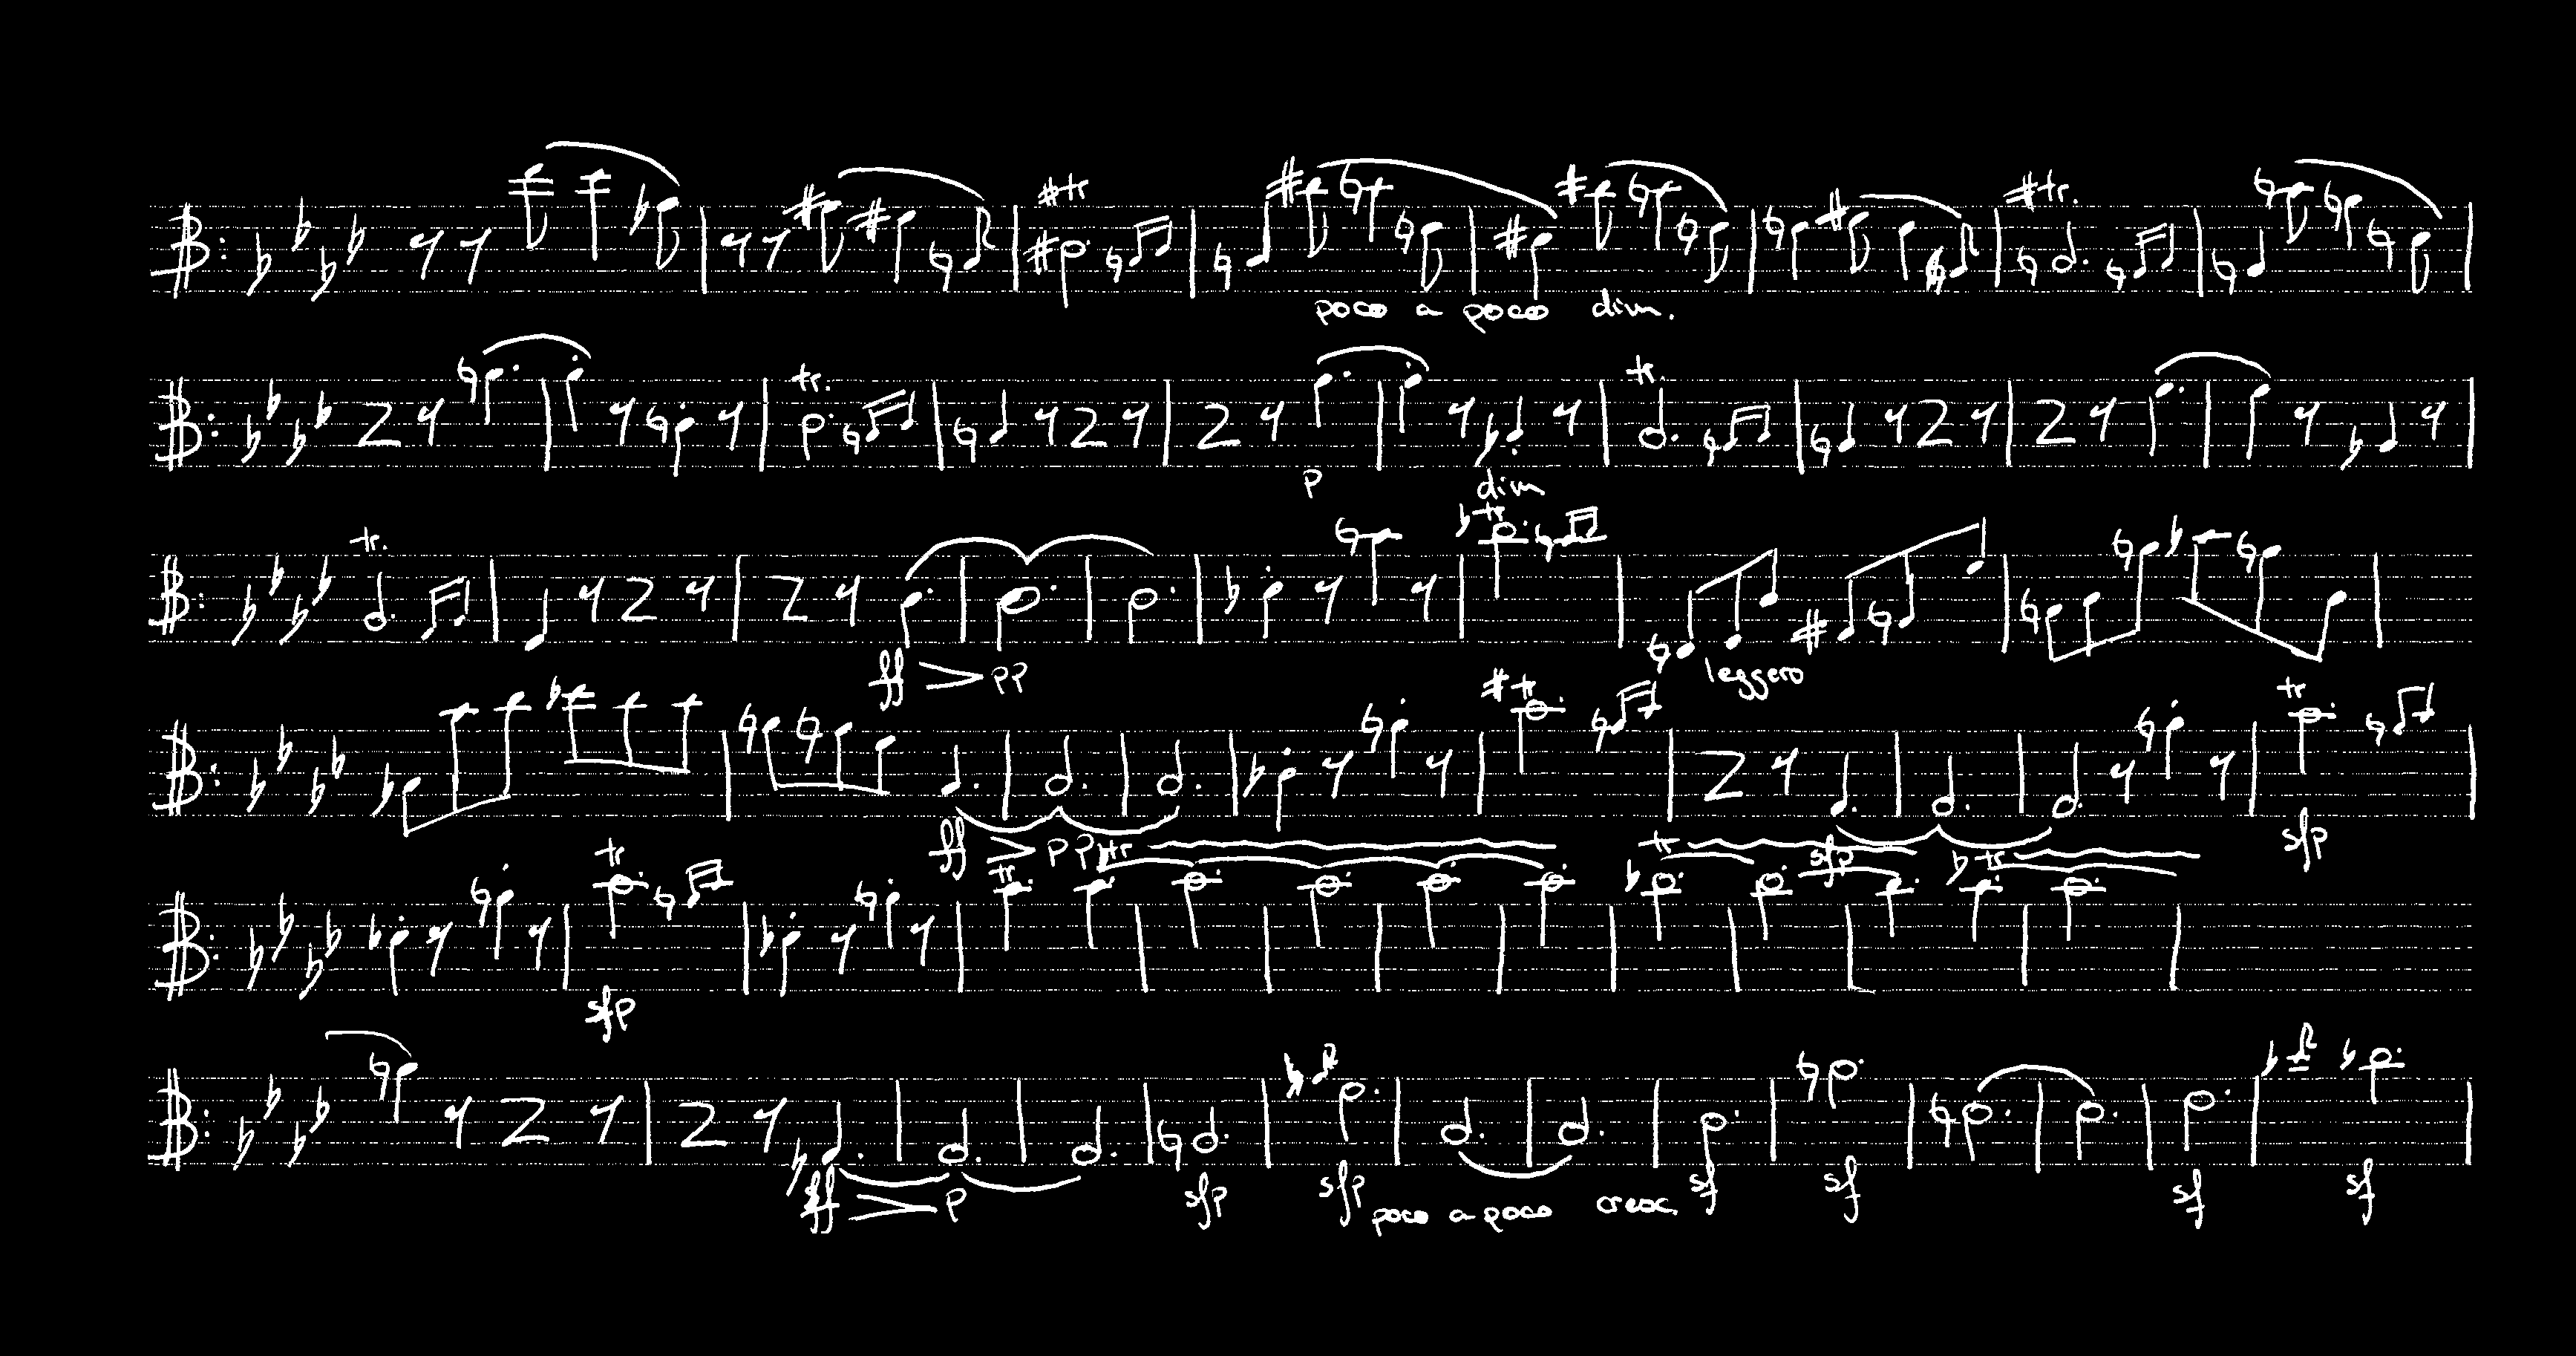 tr.
poco a poco dim.
tr.
tr.
tr.
p
dim
tr.
tr
ff pp
leggero
tr
tr
ff pp
sfp
tr
tr
tr
tr
sfp
tr
sfp
ff p
sfp
sfp
poco a poco cresc.
sf
sf
sf
sf